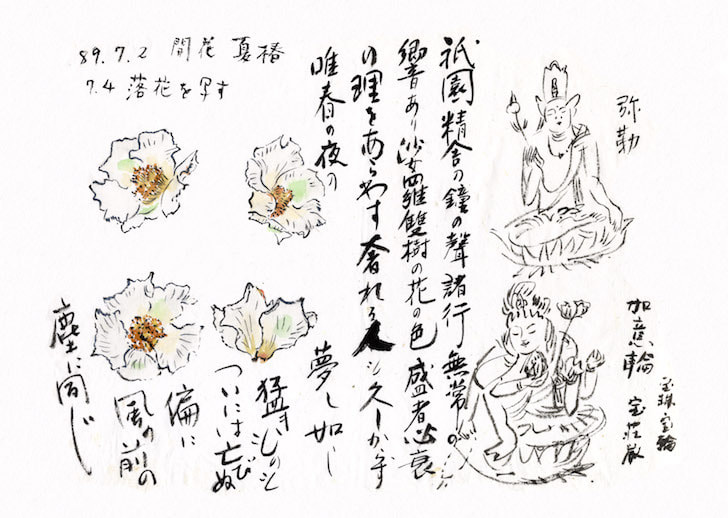 89.7.2 開花 夏椿
7.4 落花を写す
弥勒
如意輪 宝荘厳
宝珠 宝輪
祇園精舎の鐘の聲諸行無常の
響あり沙羅雙樹の花の色盛者必衰
の理をあらわす奢れる人も久しからず
唯春の夜の
夢し如し
猛き
ついには亡びぬ
偏に
風の前の
塵に同じ